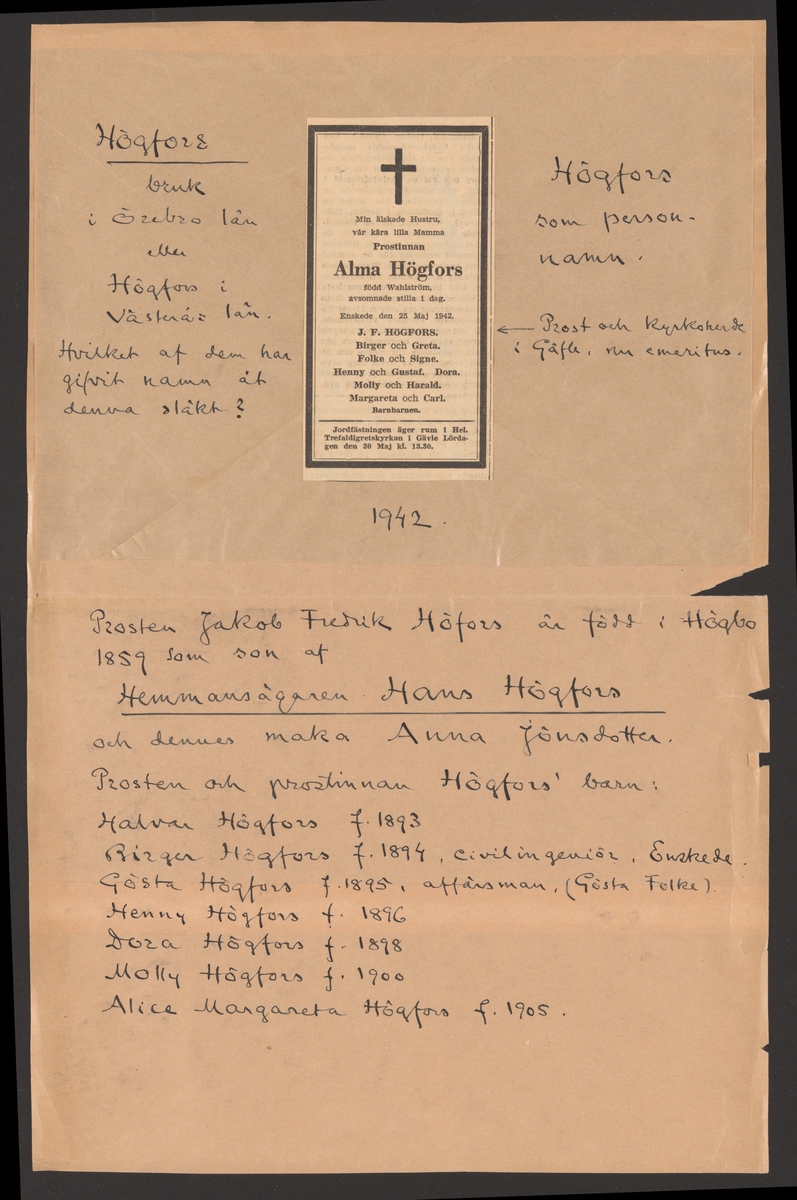 Högfors
bruk
i Örebro län
eller
Högfors i
Västerås län.
Hvilket af dem har
gifvit namn åt
denna släkt?
Min älskade Hustru,
vår kära lilla Mamma
Prostinnan
Alma Högfors
född Wahlström,
avsomnade stilla i dag.
Enskede den 25 Maj 1942.
J. F. HÖGFORS.
Birger och Greta.
Folke och Signe.
Henny och Gustaf. Dora.
Molly och Harald.
Margareta och Carl.
Barnbarnen.
Jordfästningen äger rum i Hel.
Trefaldigretskyrkan i Gävle Lörda-
gen den 30 Maj kl. 13.30.
Högfors
som person-
namn.
← Prost och kyrkoherde
i Gäfle, nu emeritus.
1942.
Prosten Jakob Fredrik Höfors är född i Högbo
1859 som son af
Hemmansägaren Hans Högfors
och dennes maka Anna Jönsdotter.
Prosten och prostinnan Högfors' barn:
Halvar Högfors f. 1893
Birger Högfors f. 1894, civilingeniör, Enskede.
Gösta Högfors f. 1895, affärsman, (Gösta Folke).
Henny Högfors f. 1896
Dora Högfors f. 1898
Molly Högfors f. 1900
Alice Margareta Högfors f. 1905.